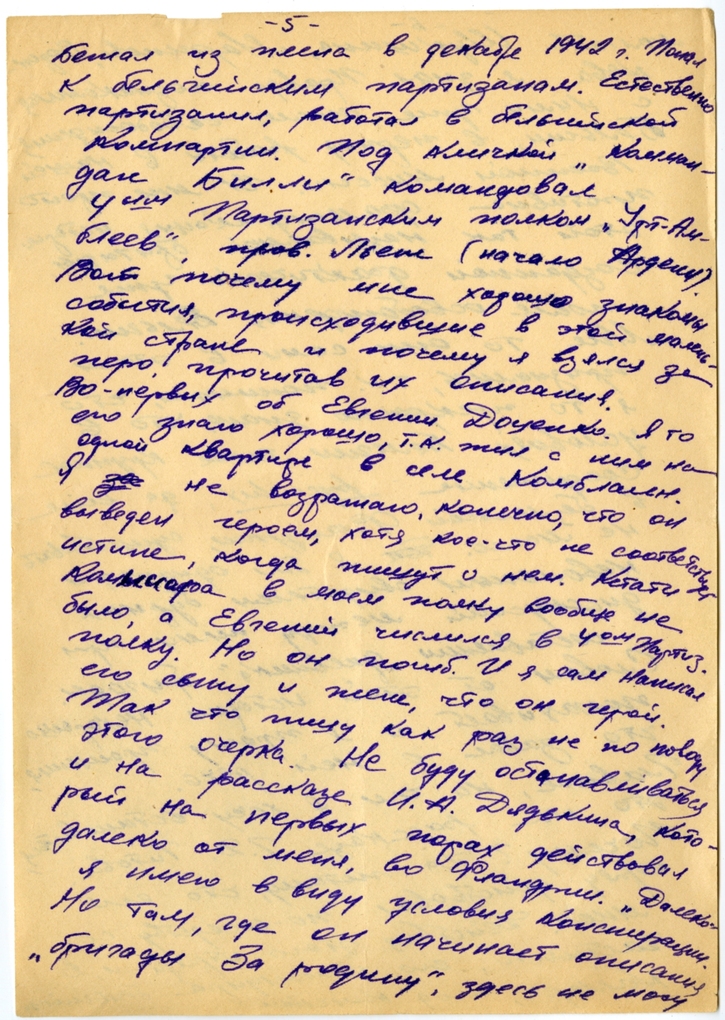 -5-
Бежал из плена в декабре 1942 г. Попал
к бельгийским партизанам. Естественно
партизанил, работал в бельгийской
компартии. Под кличкой „Комман-
дан Билли" командовал
4ым Партизанским полком „Урт-Ам-
блев", пров. Льеж (начало Арденн).
Вот почему мне хорошо знакомы
события, происходившие в этой малень-
кой стране и почему я взялся за
перо, прочитав их описания.
Во-первых об Евгении Доценко. Я то
его знаю хорошо, т.к. жил с ним на
одной квартире в селе Комблен.
Я не возражаю, конечно, что он
выведен героем, хотя кое-что не соответствует
истине, когда пишут о нем. Кстати
Комиссара в моем полку вообще не
было, а Евгений числился в 4ом Партиз.
полку. Но он погиб. И я сам написал
его сыну и жене, что он герой.
Так что пишу как раз не по поводу
этого очерка. Не буду останавливаться
и на рассказе И.А. Дядькина, кото-
рый на первых порах действовал
далеко от меня, во Фландрии. „Далеко"
я имею в виду условия конспирации.
Но там, где он начинает описания
„бригады За родину", здесь не могу